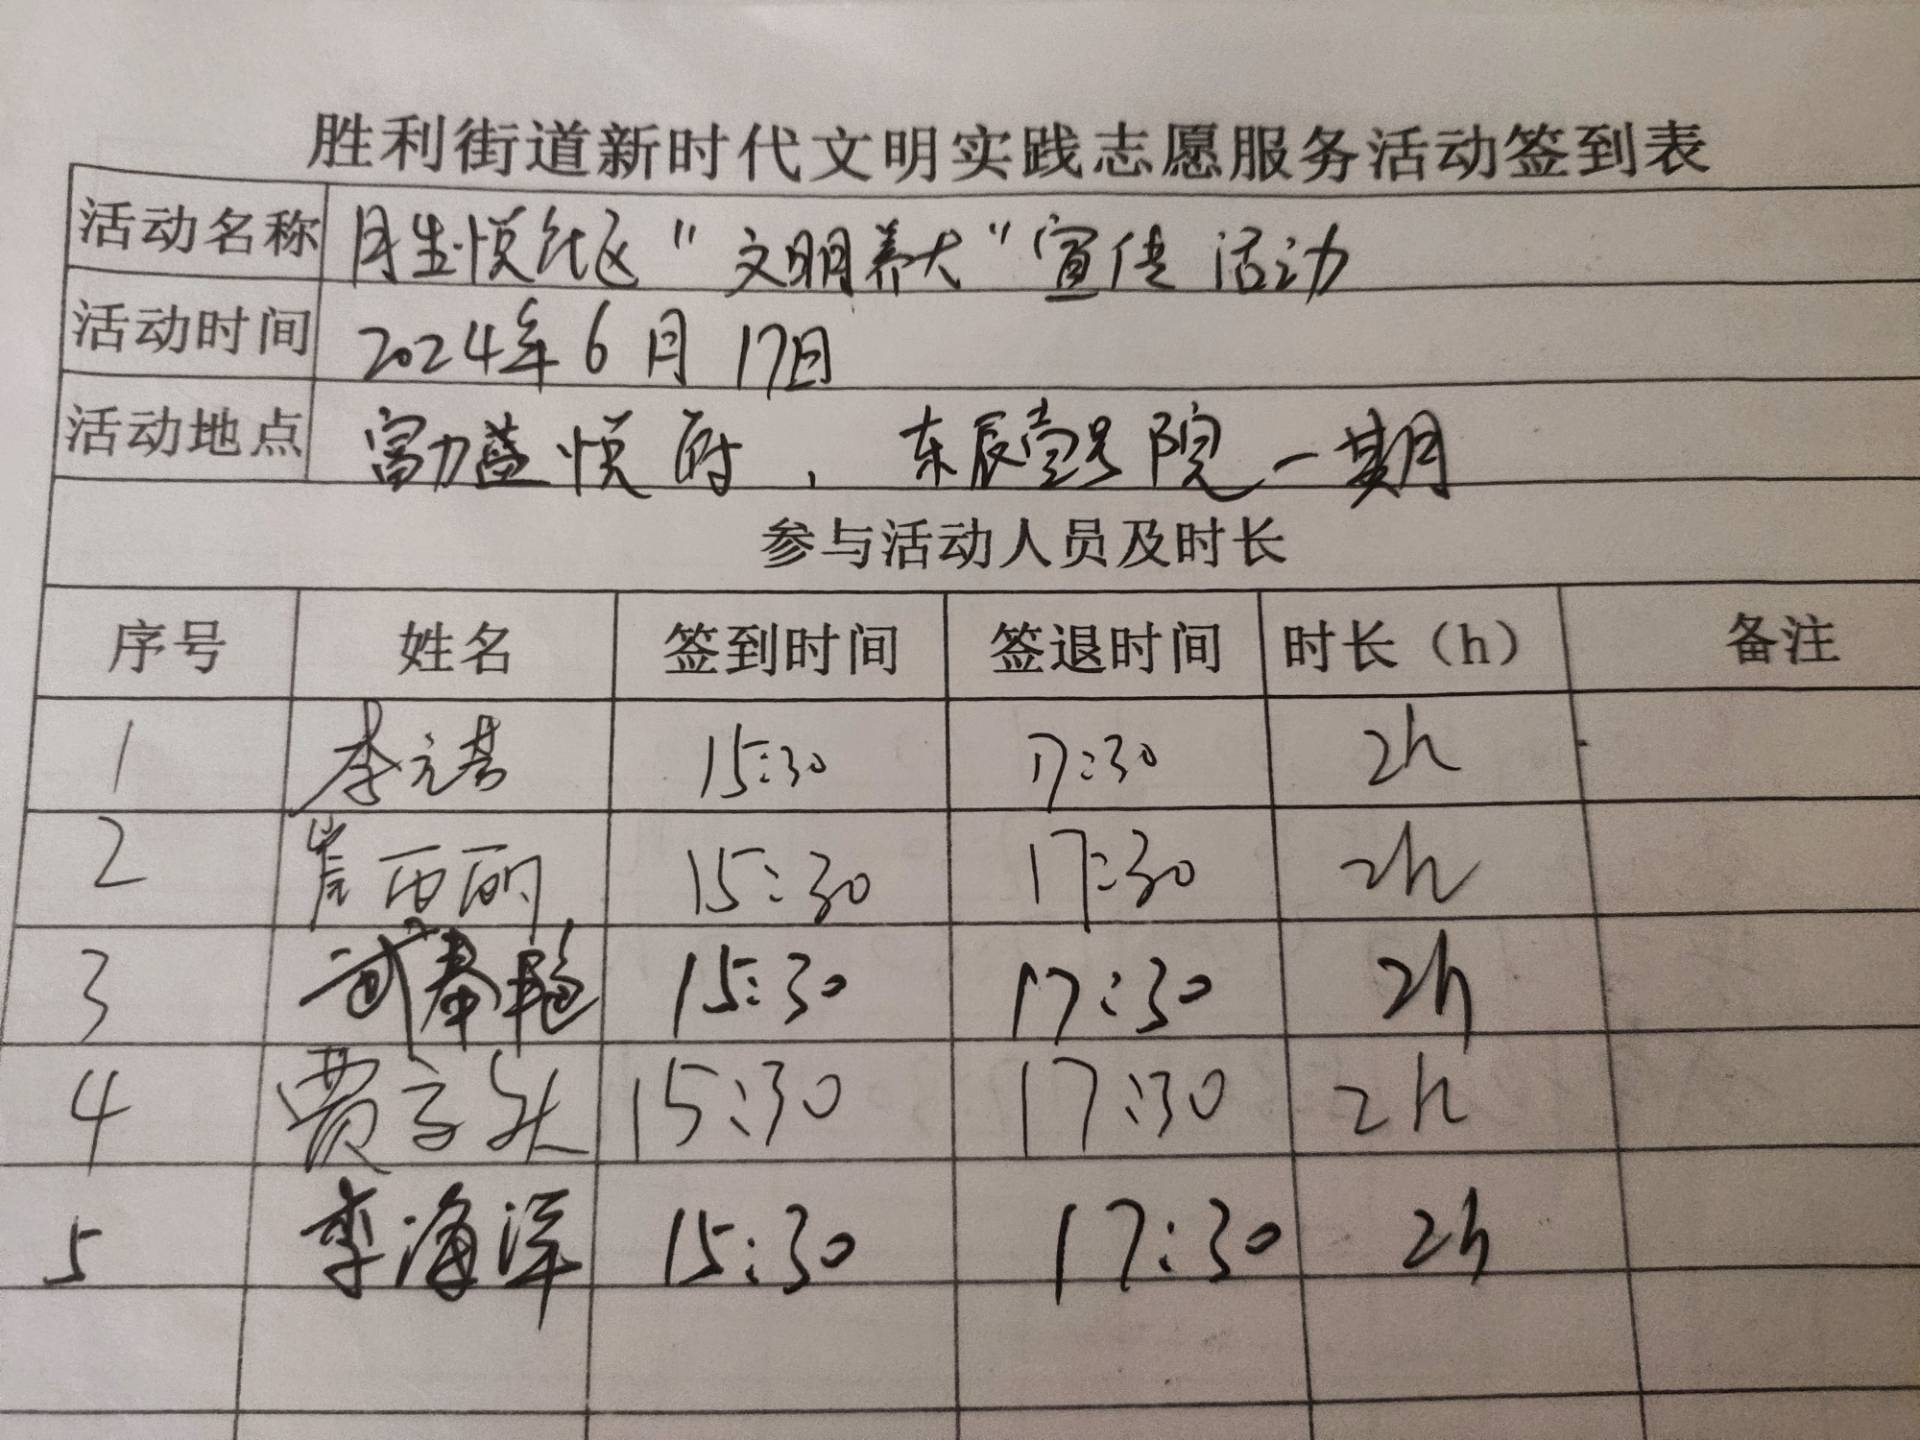 胜利街道新时代文明实践志愿服务活动签到表
活动名称 月生悦社区"文明养犬"宣传活动
活动时间 2024年6月17日
活动地点 富力盛悦府,东辰壹号院一期
参与活动人员及时长
序号 姓名 签到时间 签退时间 时长（h） 备注
1 李元 15:30 17:30 2h
2 丽 15:30 17:30 2h
3 武春艳 15:30 17:30 2h
4 贾子 15:30 17:30 2h
5 李海洋 15:30 17:30 2h